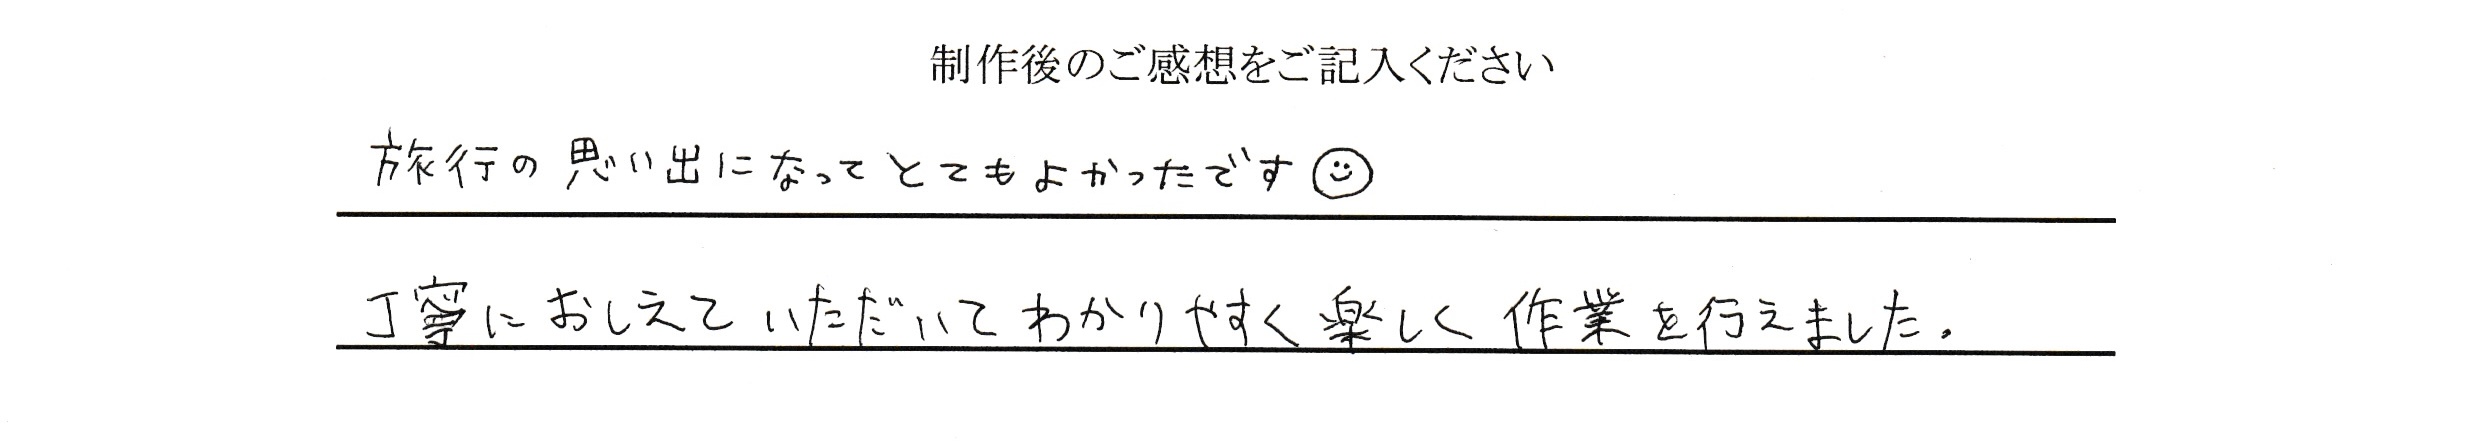 制作後のご感想をご記入ください
旅行の思い出になってとてもよかったです☺
丁寧におしえていただいてわかりやすく楽しく作業を行えました。